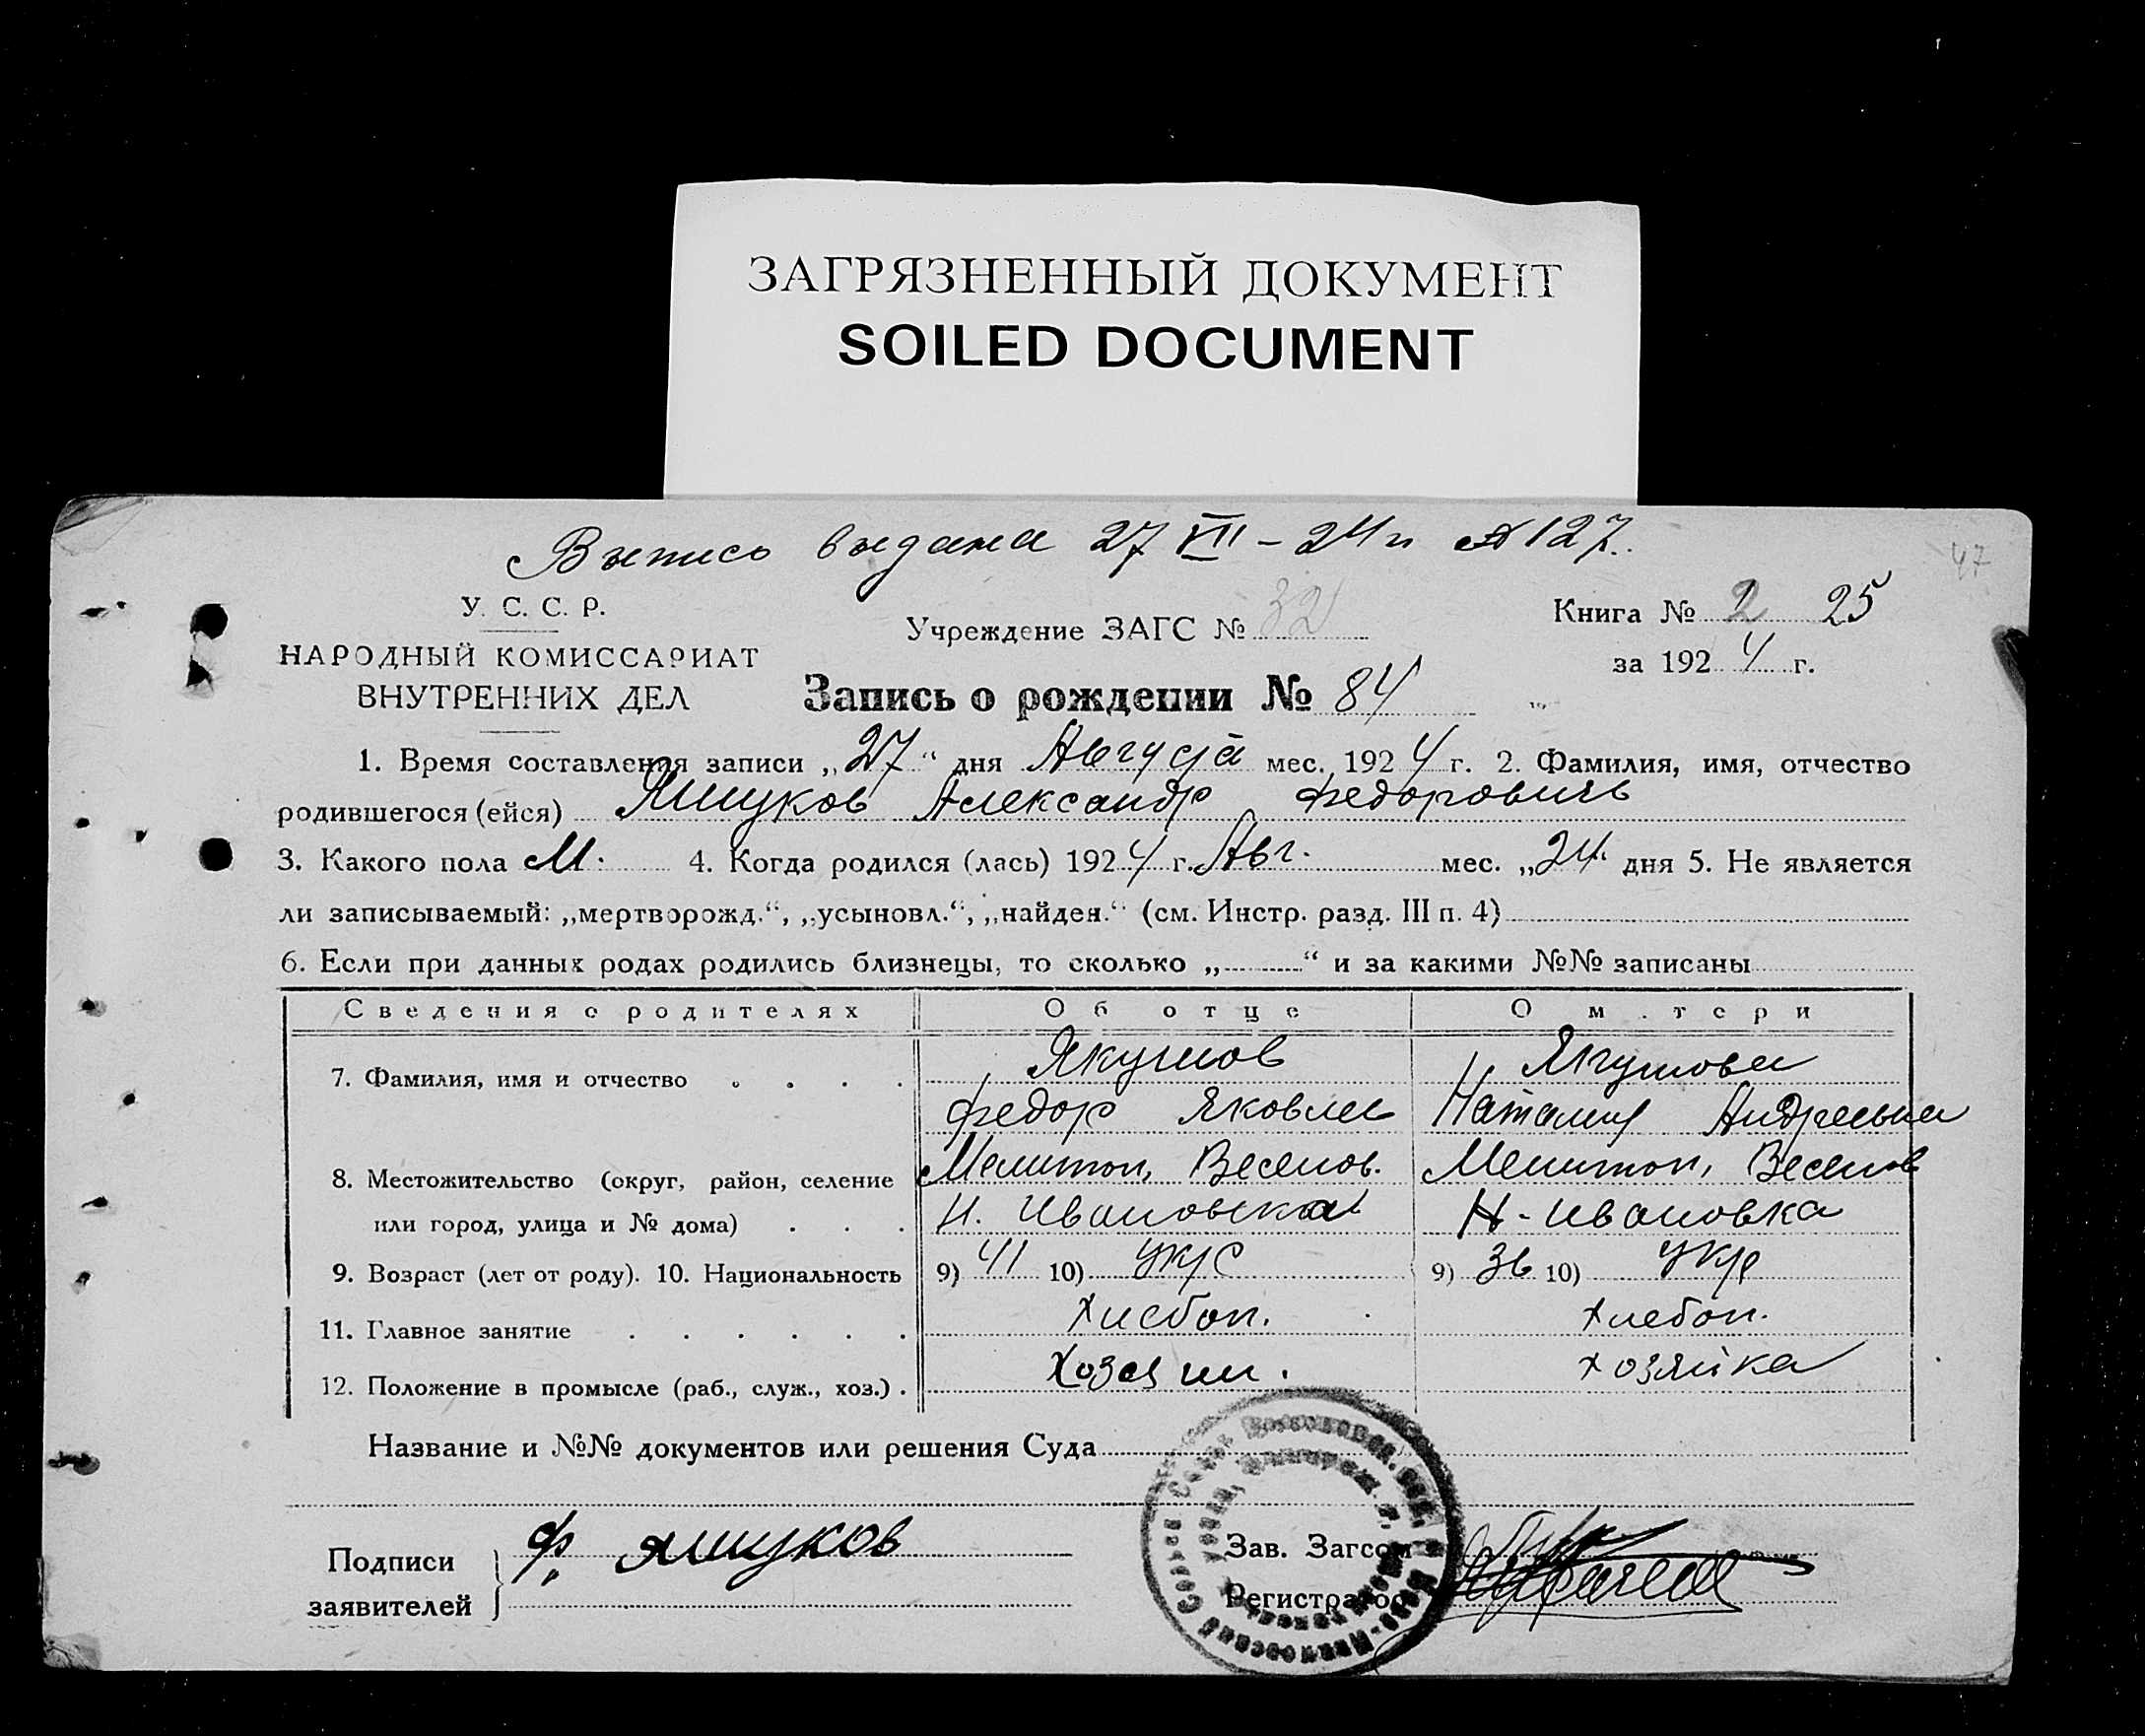 ЗАГРЯЗНЕННЫЙ ДОКУМЕНТ
SOILED DOCUMENT
Выпись выдана 27 VIII – 24 г № 127.
47
У. С. С. Р.
НАРОДНЫЙ КОМИССАРИАТ
ВНУТРЕННИХ ДЕЛ
Учреждение ЗАГС № 32
Книга № 2 25
за 1924 г.
Запись о рождении № 84
1. Время составления записи „27“ дня Августа мес. 1924 г. 2. Фамилия, имя, отчество
родившегося (ейся) Яшуков Александр Федорович
3. Какого пола М. 4. Когда родился (лась) 1924 г. Авг. мес. „24 дня 5. Не является
ли записываемый: „мертворожд.“, „усыновл.“, „найден.“ (см. Инстр. разд. III п. 4)
6. Если при данных родах родились близнецы, то сколько „ “ и за какими №№ записаны
Сведения о родителях Об отце О м.тери
7. Фамилия, имя и отчество Якушов Якушова
Федор Яковлев Наталия Андреевна
8. Местожительство (округ, район, селение Мелитоп, Веселов. Мелитоп, Веселов
или город, улица и № дома) Н. Ивановка Н-Ивановка
9. Возраст (лет от роду). 10. Национальность 9) 41 10) укр 9) 36 10) укр
11. Главное занятие Хлебоп. Хлебоп.
12. Положение в промысле (раб., служ., хоз.) Хозяин. хозяйка
Название и №№ документов или решения Суда
Подписи заявителей Ф. Яшуков
Зав. Загсом
Регистратор